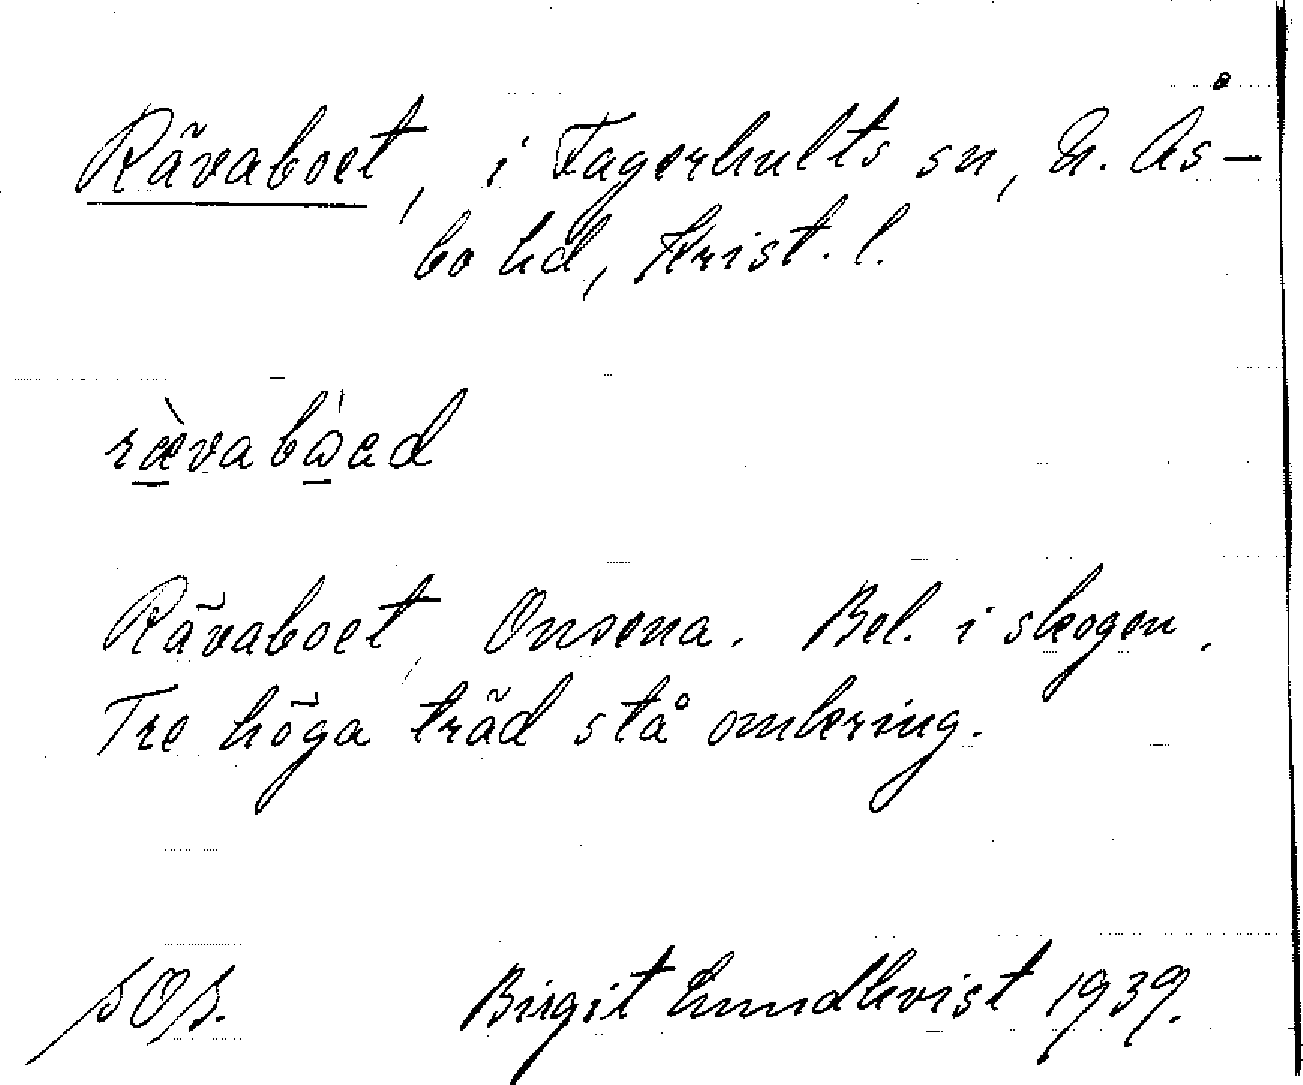 Rävaboet, i Fagerhults sn, N. Ås-
bo hd, Krist. l.
rævabɷad
Rävaboet, Onsena. Bel. i skogen.
Tre höga träd stå omkring.
Birgit Lundkvist 1939.